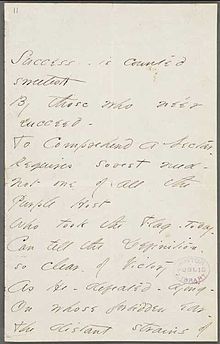 11
Success - is counted
sweetest
By those who ne'er
succeed -
To Comprehend a Nectar
Requires sorest need -
Not one of all the
Purple Host
Who took the Flag - today -
Can tell the Definition -
so clear - of Victory
As He - defeated - dying -
On whose forbidden ear -
The distant strains of
PUBLIC
LIBRARY